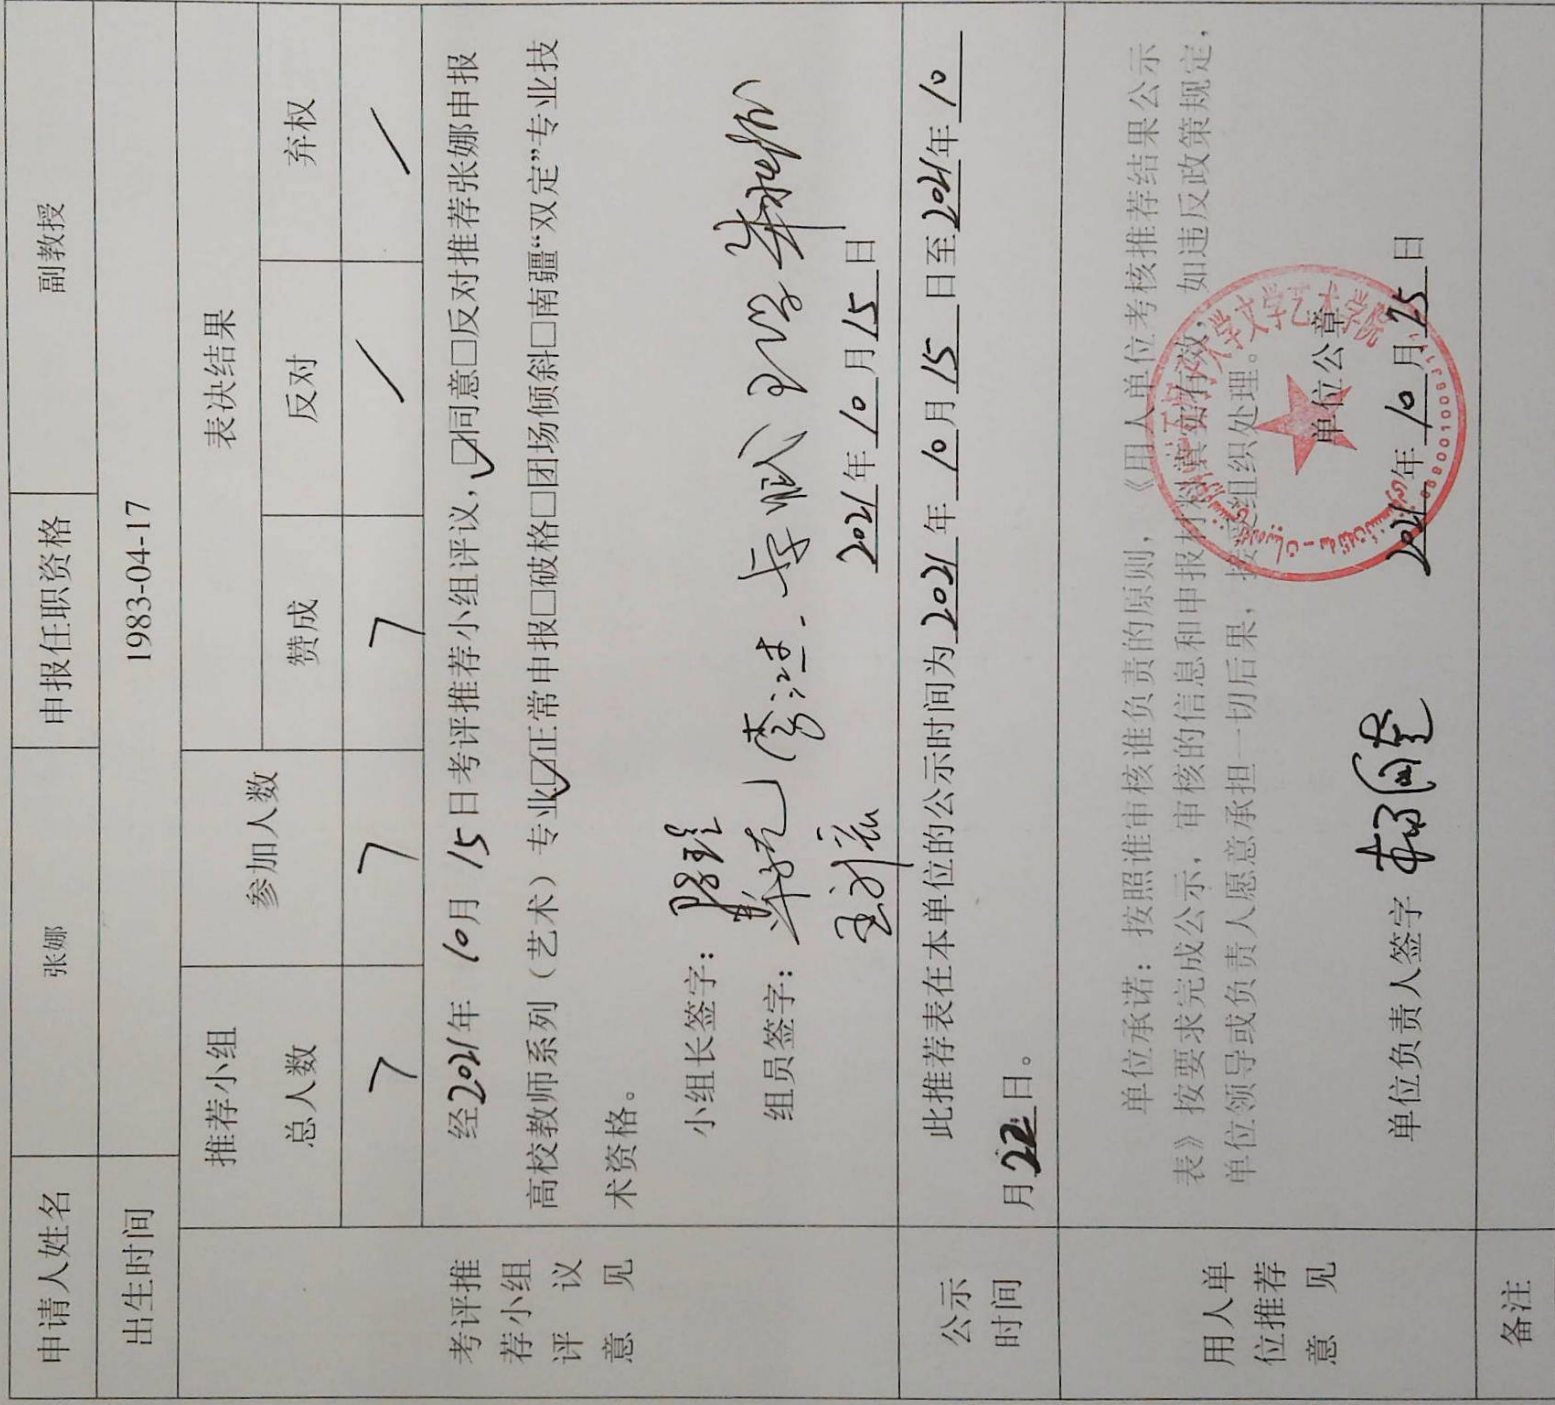 申请人姓名 张娜 申报任职资格 副教授
出生时间 1983-04-17
推荐小组 参加人数 表决结果
总人数 赞成 反对 弃权
7 7 7 / /
考评推
荐小组
评 议
意 见
经2021年 10月 15日考评推荐小组评议,☑同意□反对推荐张娜申报
高校教师系列（艺术）专业☑正常申报□破格□团场倾斜□南疆“双定”专业技
术资格。
小组长签字:
组员签字:
2021年 10月15日
公示
时间
此推荐表在本单位的公示时间为2021年 10月15 日至2021年 10
月22日。
用人单
位推荐
意 见
单位承诺：按照谁审核谁负责的原则，《用人单位考核推荐结果公示
表》按要求完成公示，审核的信息和申报材料真实有效，如违反政策规定，
单位领导或负责人愿意承担一切后果，接受组织处理。
大学文学艺术学院
单位公章
单位负责人签字
2021年 10月25日
备注